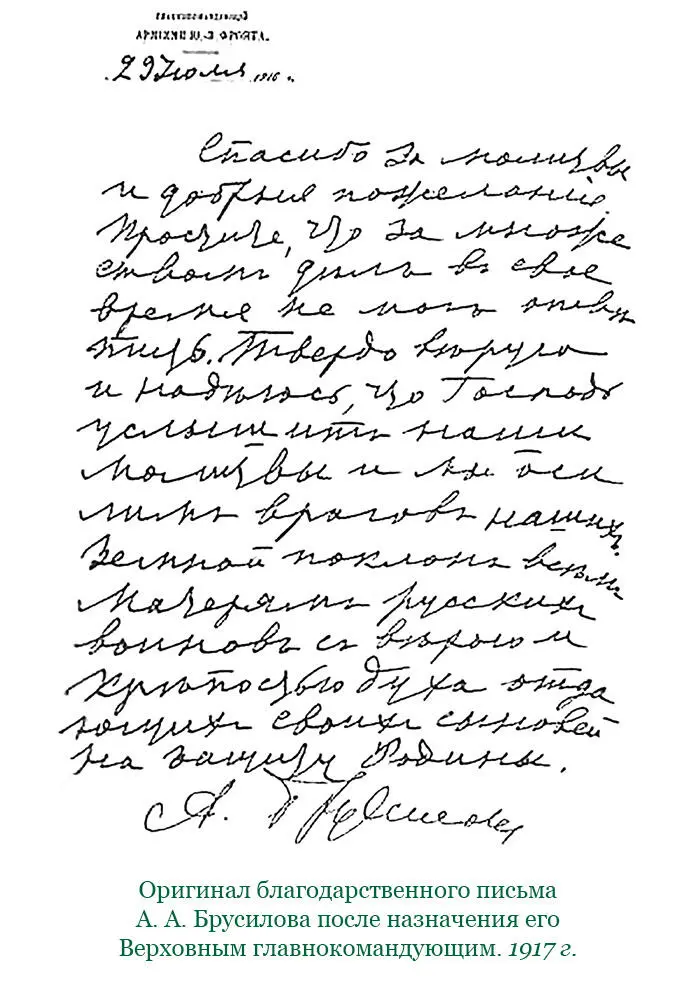 ГЛАВНОКОМАНДУЮЩІЙ
АРМІЯМИ Ю.-З. ФРОНТА.
29 Июля 1916 г.
Спасибо за молитвы
и добрыя пожеланія
Простите, что за множе
ствомъ дѣлъ въ свое
время не могъ отвѣ
тить. Твердо вѣрую
и надѣюсь, что Господь
услышитъ наши
молитвы и мы оси
лимъ враговъ нашихъ.
Земной поклонъ всѣмъ
матерямъ русскихъ
воиновъ съ вѣрою и
крѣпостью духа отда
ющихъ своихъ сыновей
на защиту Родины.
А. Брусиловъ
Оригинал благодарственного письма
А. А. Брусилова после назначения его
Верховным главнокомандующим. 1917 г.